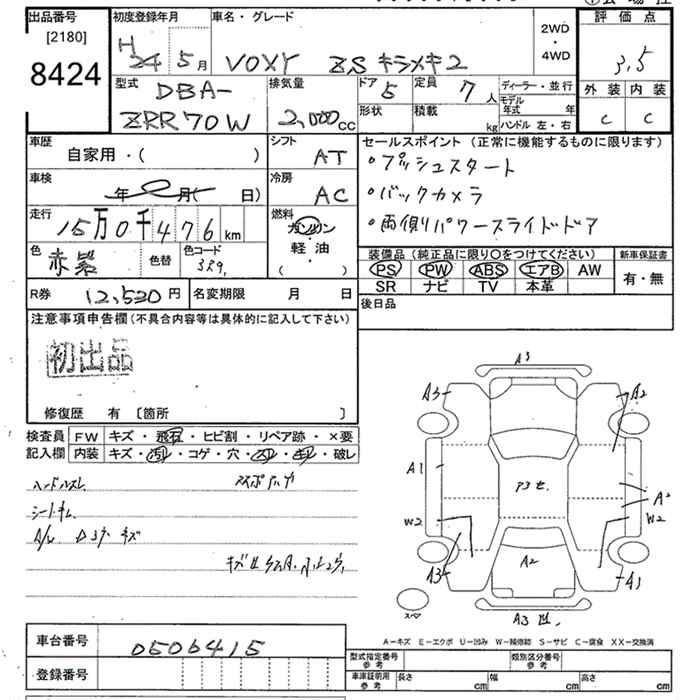 出品番号
[2180]
8424
初度登録年月
H 24 5 月
車名・グレード
VOXY ZS キラメキ2
2WD
・
4WD
評価点
3.5
外装 内装
C C
型式
DBA-
ZRR70W
排気量
2,000 cc
ドア 5
定員 7 人
形状
積載 kg
ディーラー・並行
モデル年式 年
ハンドル 左・右
車歴
自家用・( )
シフト
AT
車検
年 月( 日)
冷房
AC
走行
15万0千476 km
燃料
ガソリン
・
軽油
( )
色
赤紫
色替
色コード
3R9
R券 12,520 円
名変期限 月 日
セールスポイント (正常に機能するものに限ります)
・プッシュスタート
・バックカメラ
・両側パワースライドドア
装備品 (純正品に限り○をつけてください)
PS PW ABS エアB AW
SR ナビ TV 本革
新車保証書
有・無
後日品
注意事項申告欄 (不具合内容等は具体的に記入して下さい)
初出品
修復歴 有 [箇所 ]
検査員
記入欄
FW キズ・飛石・ヒビ割・リペア跡・×要
内装 キズ・汚れ・コゲ・穴・スレ・キレ・破レ
ハンドルスレ
A/W D3ケ キズ
A3
A3
A2
A1
A2
W2
W2
A3
A2
A1
スペア
A-キズ E-エクボ U-凹み W-補修跡 S-サビ C-腐食 XX-交換済
車台番号 0506415
登録番号
型式指定番号
参考
類別区分番号
参考
車庫証明用
参考
長さ cm
幅 cm
高さ cm